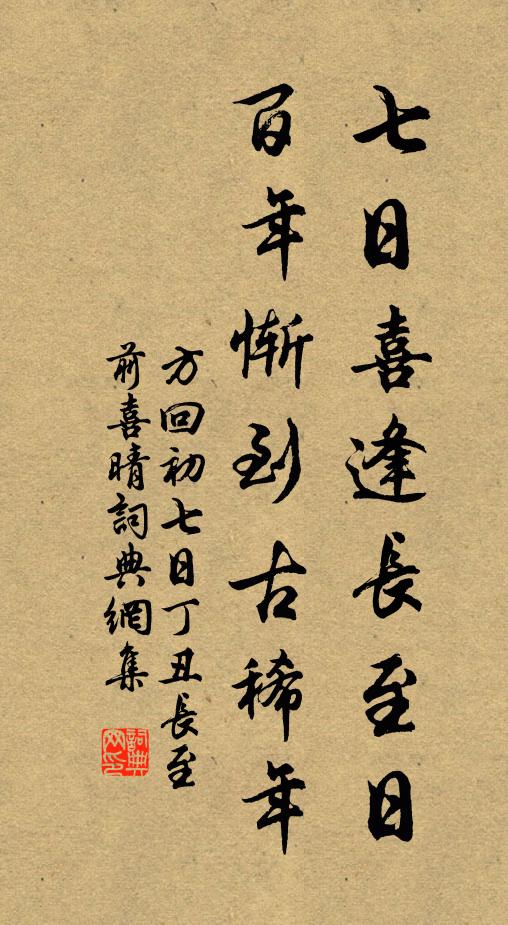 七日喜逢長至日
百年慚到古稀年
方回初七日丁丑長至
前喜晴詞典網集
詞典
网印